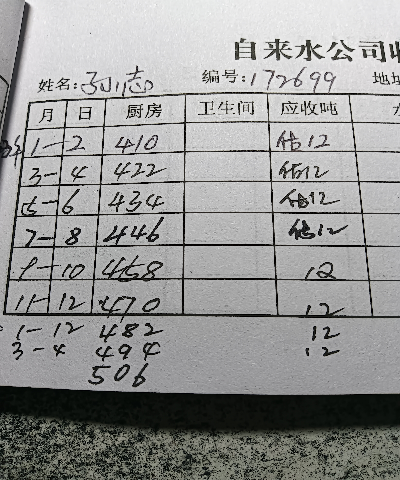 自来水公司收
姓名: 编号:172699 地址
月 日 厨房 卫生间 应收吨
1-2 410 估12
3-4 422 估12
5-6 434 估12
7-8 446 估12
9-10 458 12
11-12 470 12
1-12 482 12
3-4 494 12
506